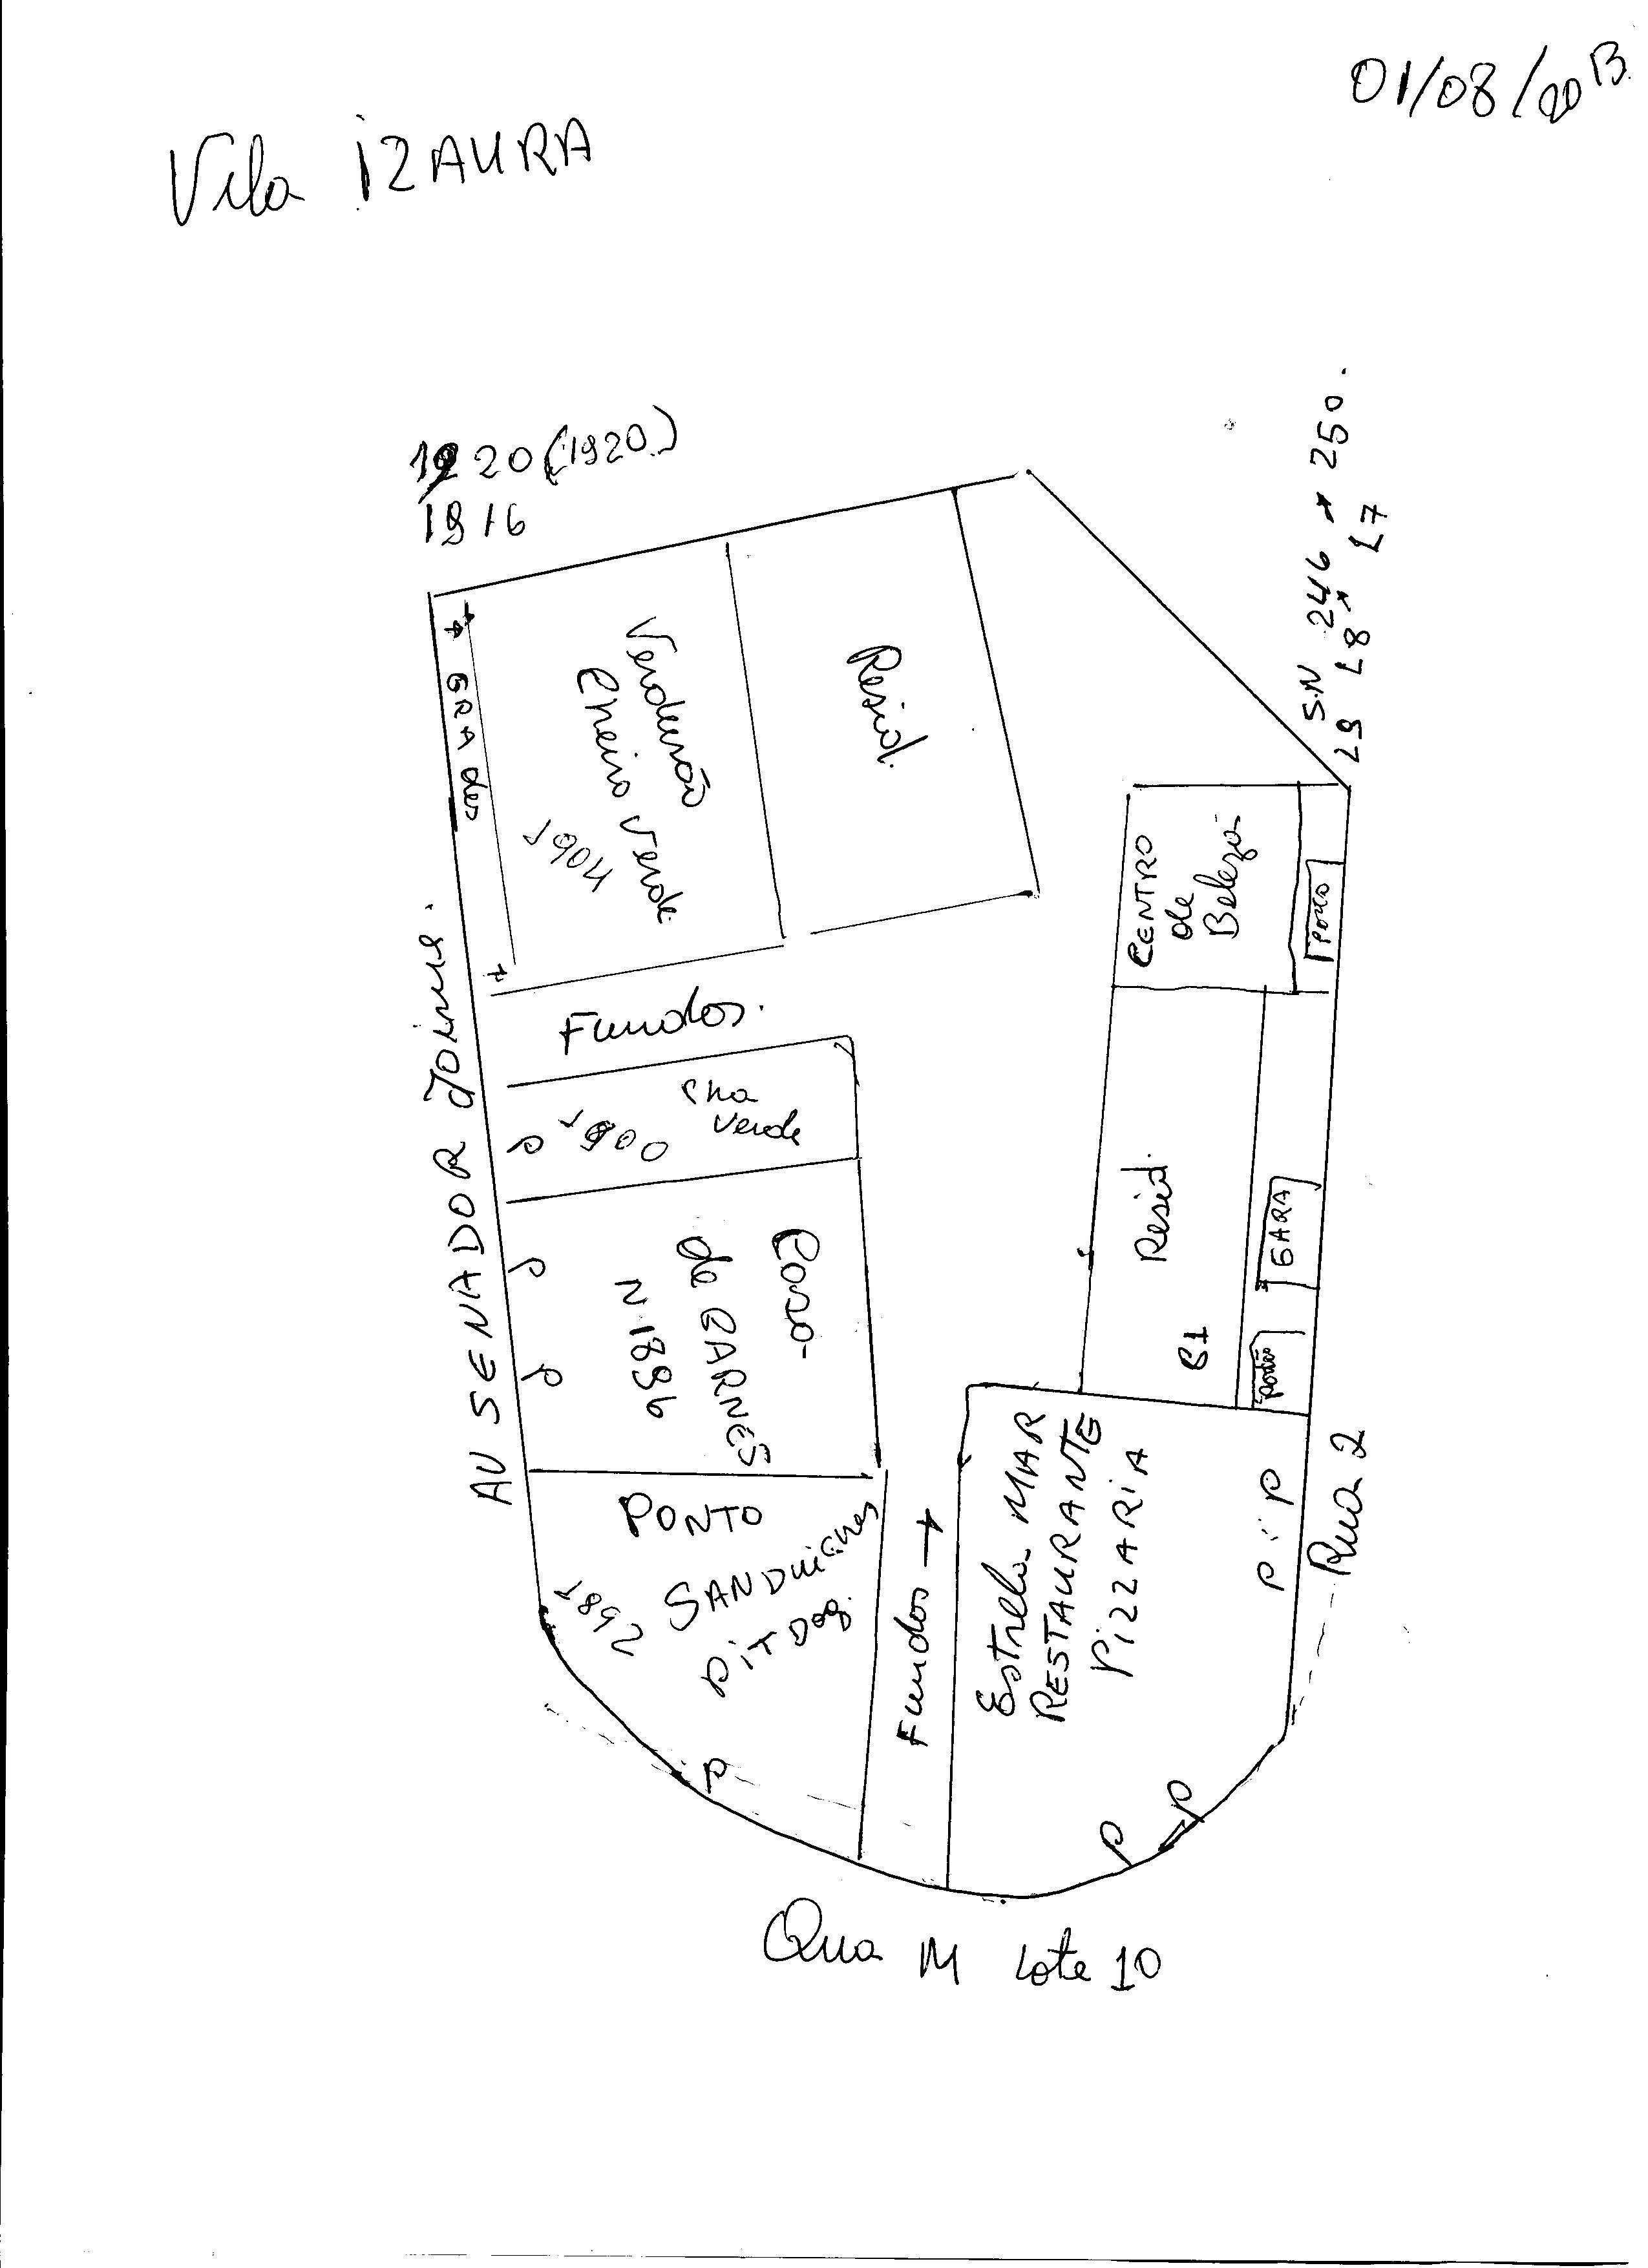 01/08/2013
Vila IZAURA
1920 (1920)
1916
S.N 246 * 250.
L9 L8* L7
GRAdes
Verdurão
Cheiro Verde
1904
Resid.
AV SENADOR Jaime.
Fundos.
P 1900
Cha
Verde
P
P
Casa
de CARNES
N.1896
PONTO
SANDUiches
PiT Dog.
1892
P
Fundos →
CENTRO
de
Beleza
Resid.
B1
GARA
Portão
Estrela MAR
RESTAURANTE
PiZZARiA
P P
P P
Rua 2
Qua M Lote 10